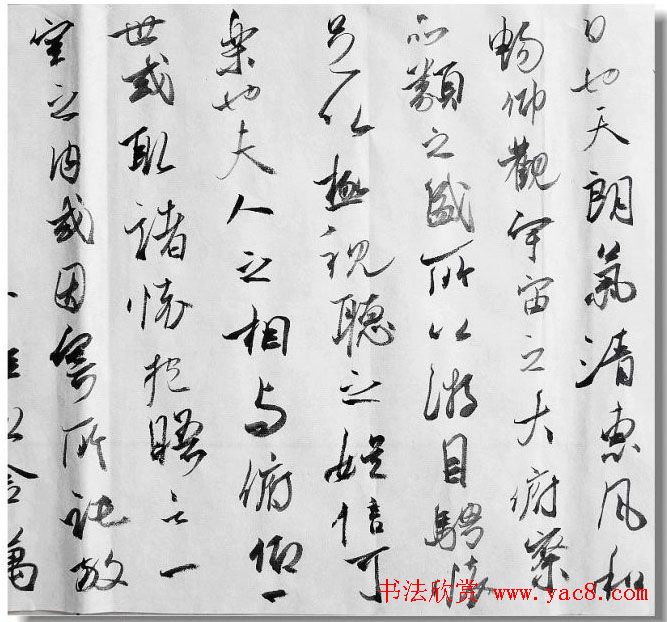 日也天朗氣清惠風和
暢仰觀宇宙之大俯察
品類之盛所以游目騁懷
足以極視聽之娛信可
樂也夫人之相與俯仰一
世或取諸懷抱晤言一
室之内或因寄所託放
書法欣賞 www.yac8.com